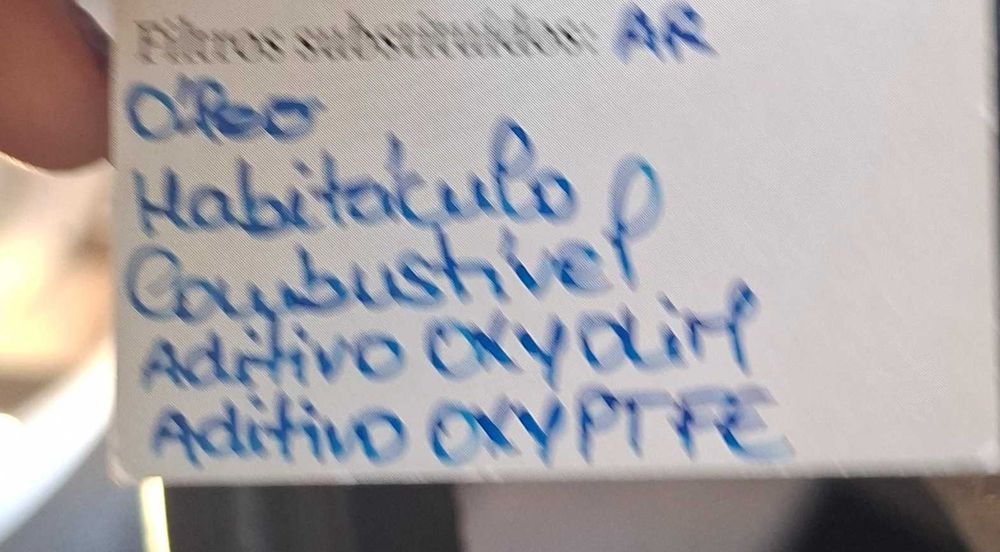 Filtros substituídos: AR
Óleo
Habitáculo
Combustível
Aditivo OXYdirt
Aditivo OXYPTFE